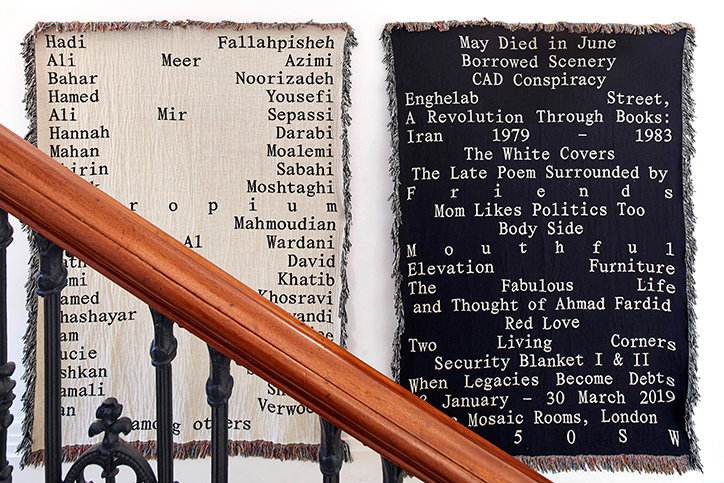 Hadi Fallahpisheh
Ali Meer Azimi
Bahar Noorizadeh
Hamed Yousefi
Ali Mir Sepassi
Hannah Darabi
Mahan Moalemi
Sabahi
Moshtaghi
r o p i u m
Mahmoudian
Al Wardani
David
Khatib
Khosravi
Verwoe
among others
May Died in June
Borrowed Scenery
CAD Conspiracy
Enghelab Street,
A Revolution Through Books:
Iran 1979 – 1983
The White Covers
The Late Poem Surrounded by
F r i e n d s
Mom Likes Politics Too
Body Side
M o u t h f u l
Elevation Furniture
The Fabulous Life
and Thought of Ahmad Fardid
Red Love
Two Living Corners
Security Blanket I & II
When Legacies Become Debts
January - 30 March 2019
Mosaic Rooms, London
5 0 S W